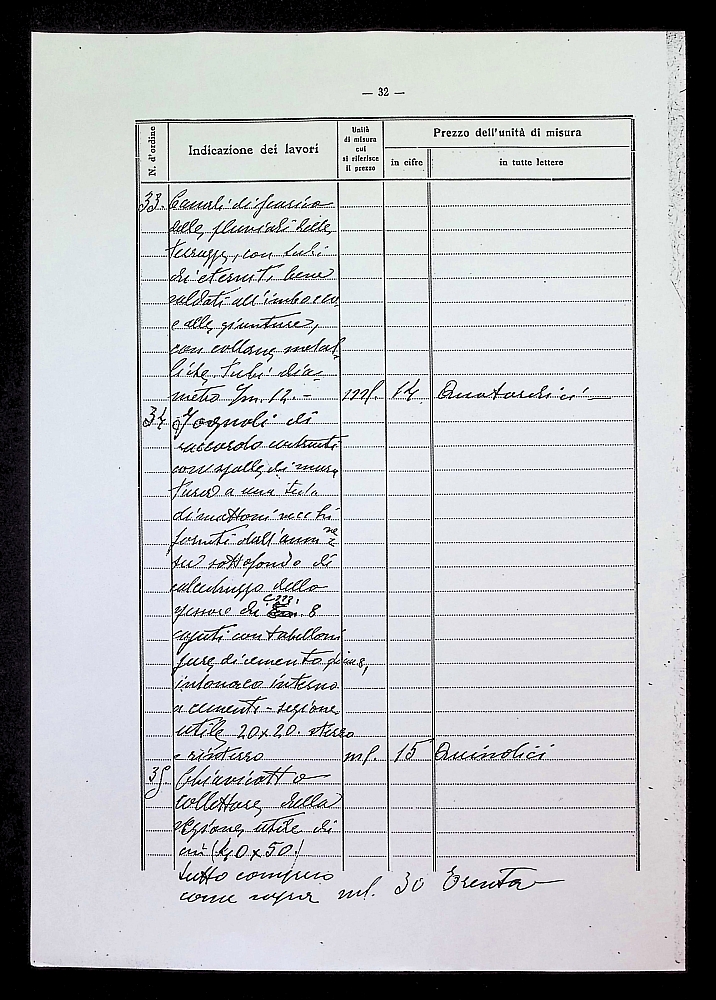 — 32 —
N. d'ordine
Indicazione dei lavori
Unità
di misura
cui
si riferisce
il prezzo
Prezzo dell'unità di misura
in cifre
in tutte lettere
33. Canali di scarico
delle pluviali delle
terrazze, con tubi
di eternit bene
saldati all'imbocco
e alle giunture,
con collane metal-
liche, tubi dia-
metro c/m. 12. - ml. 14 Quatordici —
34 Fognoli di
raccordo costruiti
con spalle di mura
tura a una testa
di mattoni vecchi
forniti dall'amm ne
su sottofondo di
calcestruzzo dello
spessore di cm. 8
coperti con tabelloni
pure di cemento
intonaco interno
a cemento - sezione
utile 20x20. sterro
e risterro ml. 15 Quindici
35. Chiavicotto
collettore, della
sezione utile di
cm (40x50)
tutto compreso
come sopra ml. 30 Trenta —